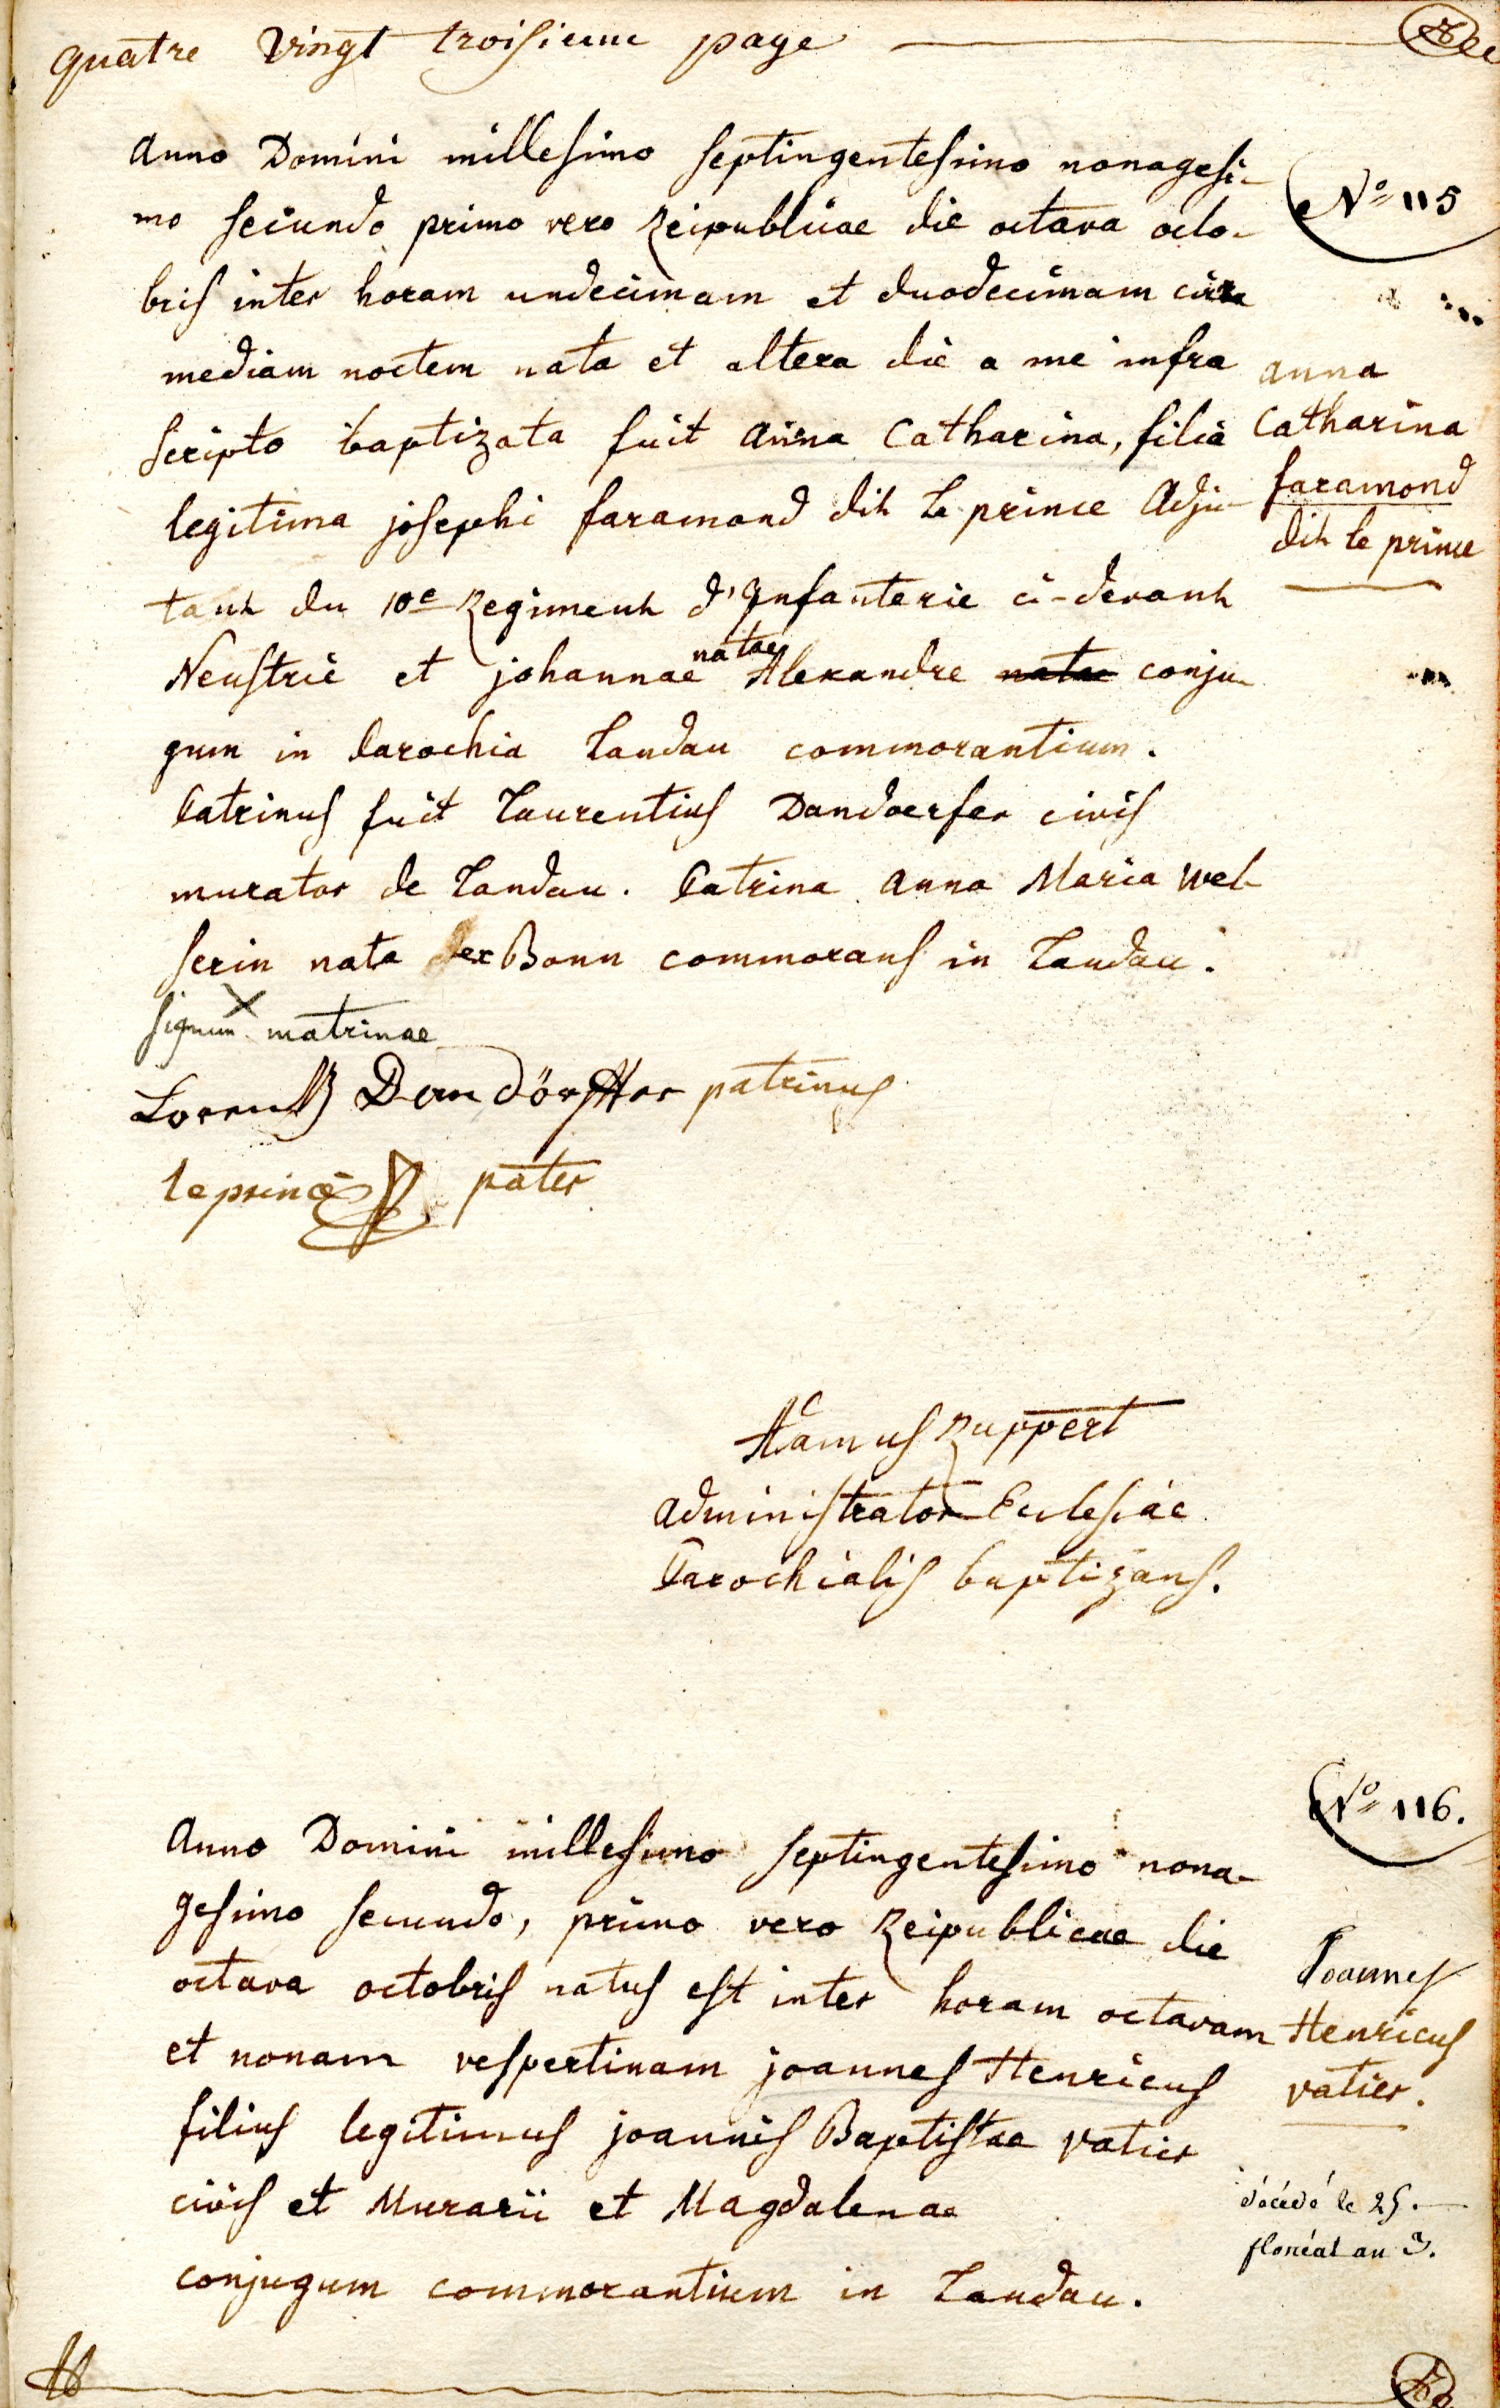 quatre vingt troisieme page
Anno Domini millesimo septingentesimo nonagesi-
mo secundo primo vero Reipublicae die octava octo-
bris inter horam undecimam et duodecimam circa
mediam noctem nata et altera die a me infra
scripto baptizata fuit Anna Catharina, filia
legitima josephi faramond dit le prince Adju-
tant du 10e Regiment d'Infanterie ci-devant
Neustrie et johannae natae Alexandre natae conju-
gum in Parochia Landau commorantium.
Patrinus fuit Laurentius Dandoerfer civis
murator de Landau. Patrina Anna Maria Wel-
serin nata Bonn commorans in Landau.
signum X matrinae
Lorentz Dandörffer patrinus
leprince pater
Adamus Ruppert
Administrator Ecclesiae
Parochialis baptizans.
No 115
anna
Catharina
faramond
dit le prince
Anno Domini millesimo septingentesimo nona-
gesimo secundo, primo vero Reipublicae die
octava octobris natus est inter horam octavam
et nonam vespertinam joannes Henricus
filius legitimus joannis Baptistae vatier
civis et Murarii et Magdalenae
conjugum commorantium in Landau.
No 116.
Joannes
Henricus
vatier.
décédé le 25.
floréal an 3.